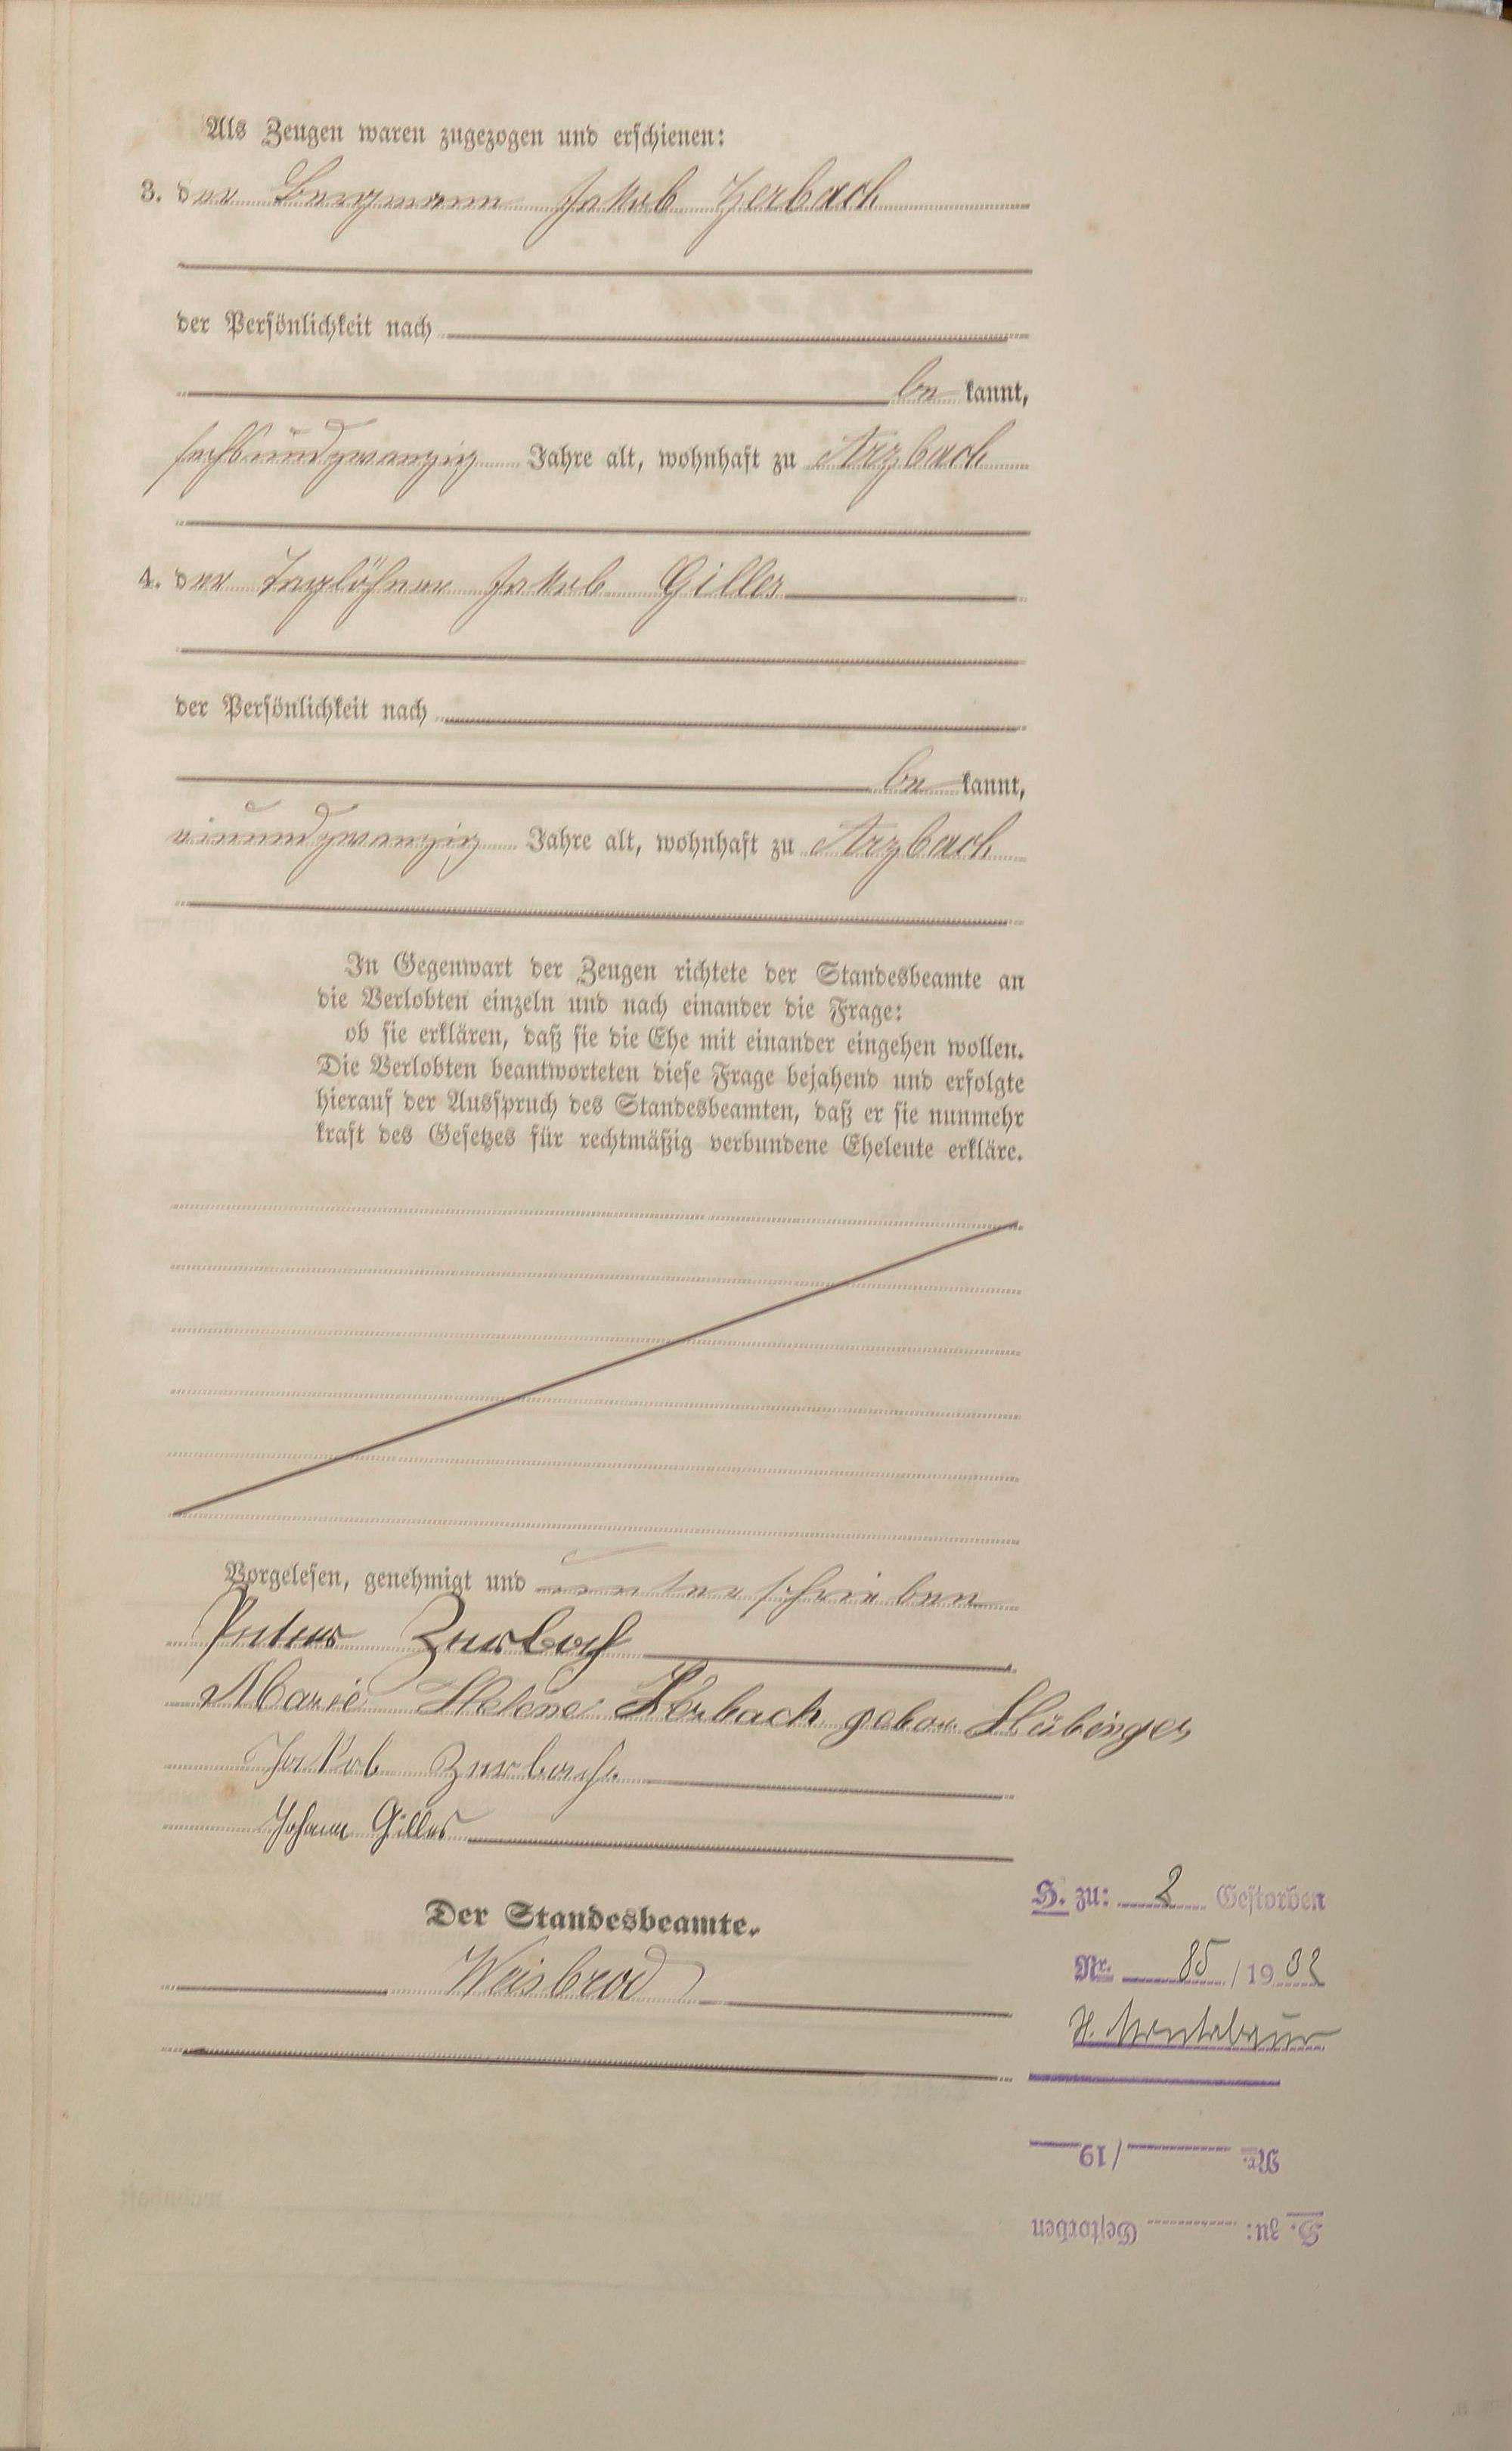 Als Zeugen waren zugezogen und erschienen:
3. der Bergmann Jakob Zerbach
der Persönlichkeit nach
be kannt,
sechsundzwanzig Jahre alt, wohnhaft zu Arzbach
4. der Taglöhner Jakob Gilles
der Persönlichkeit nach
be kannt,
einundzwanzig Jahre alt, wohnhaft zu Arzbach
In Gegenwart der Zeugen richtete der Standesbeamte an
die Verlobten einzeln und nach einander die Frage:
ob sie erklären, daß sie die Ehe mit einander eingehen wollen.
Die Verlobten beantworteten diese Frage bejahend und erfolgte
hierauf der Ausspruch des Standesbeamten, daß er sie nunmehr
kraft des Gesetzes für rechtmäßig verbundene Eheleute erkläre.
Vorgelesen, genehmigt und unterschrieben
Peter Zerbach
Marie Helene Zerbach gebor. Hübinger
Jakob Zerbach
Johann Gilles
Der Standesbeamte.
Weisbrod
H. zu: 2 Gestorben
Nr. 85 / 19 32
H. Montabaur
Nr. / 19
H. zu: Gestorben